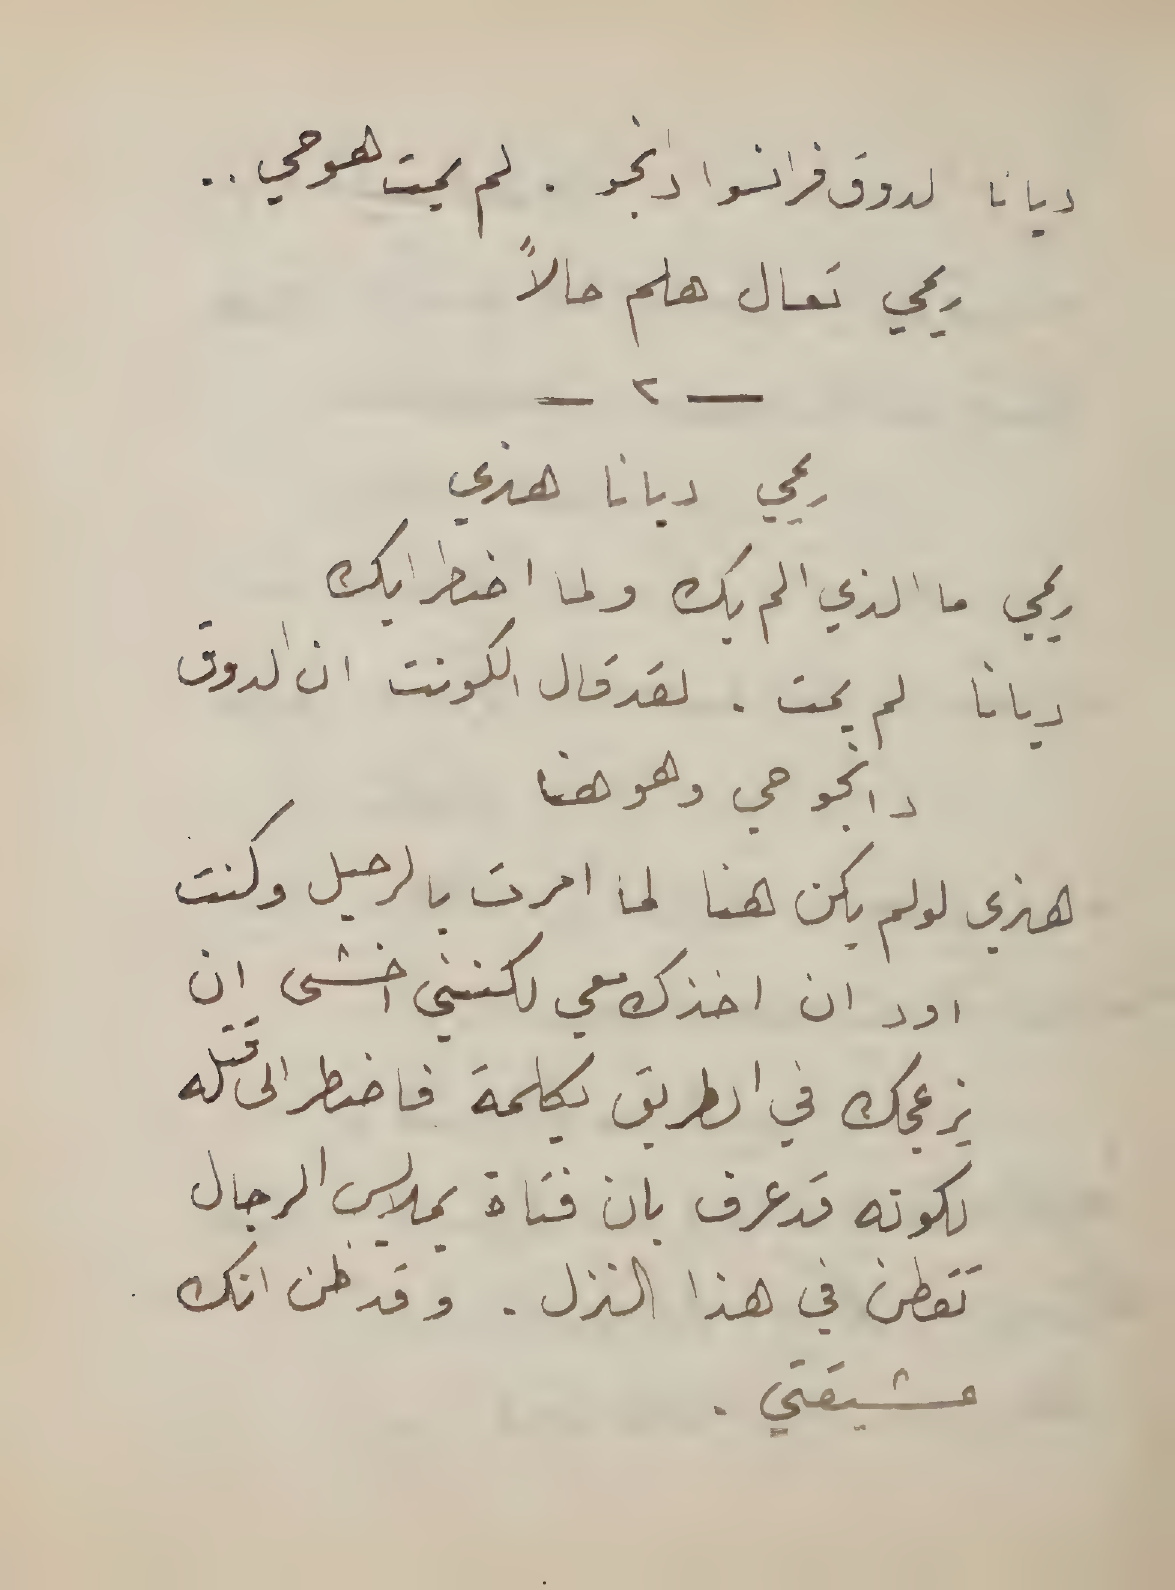 ديانا لدوق فرانسوا دانجو . لم يمت هو حي ..
ريمي تعال هلم حالاً
— ٢ —
ريمي ديانا هنري
ريمي ما الذي الم بك ولما اضطرابك
ديانا لم يمت . لقد قال الكونت ان الدوق
دانجو حي وهو هنا
هنري لو لم يكن هنا لما امرت بالرحيل وكنت
اود ان اخذك معي لكنني اخشى ان
يزعجك في الطريق بكلمة فاضطر الى قتله
لكونه قد عرف بان فتاة بملابس الرجال
تقطن في هذا النزل . وقد ظن انك
عشيقتي .